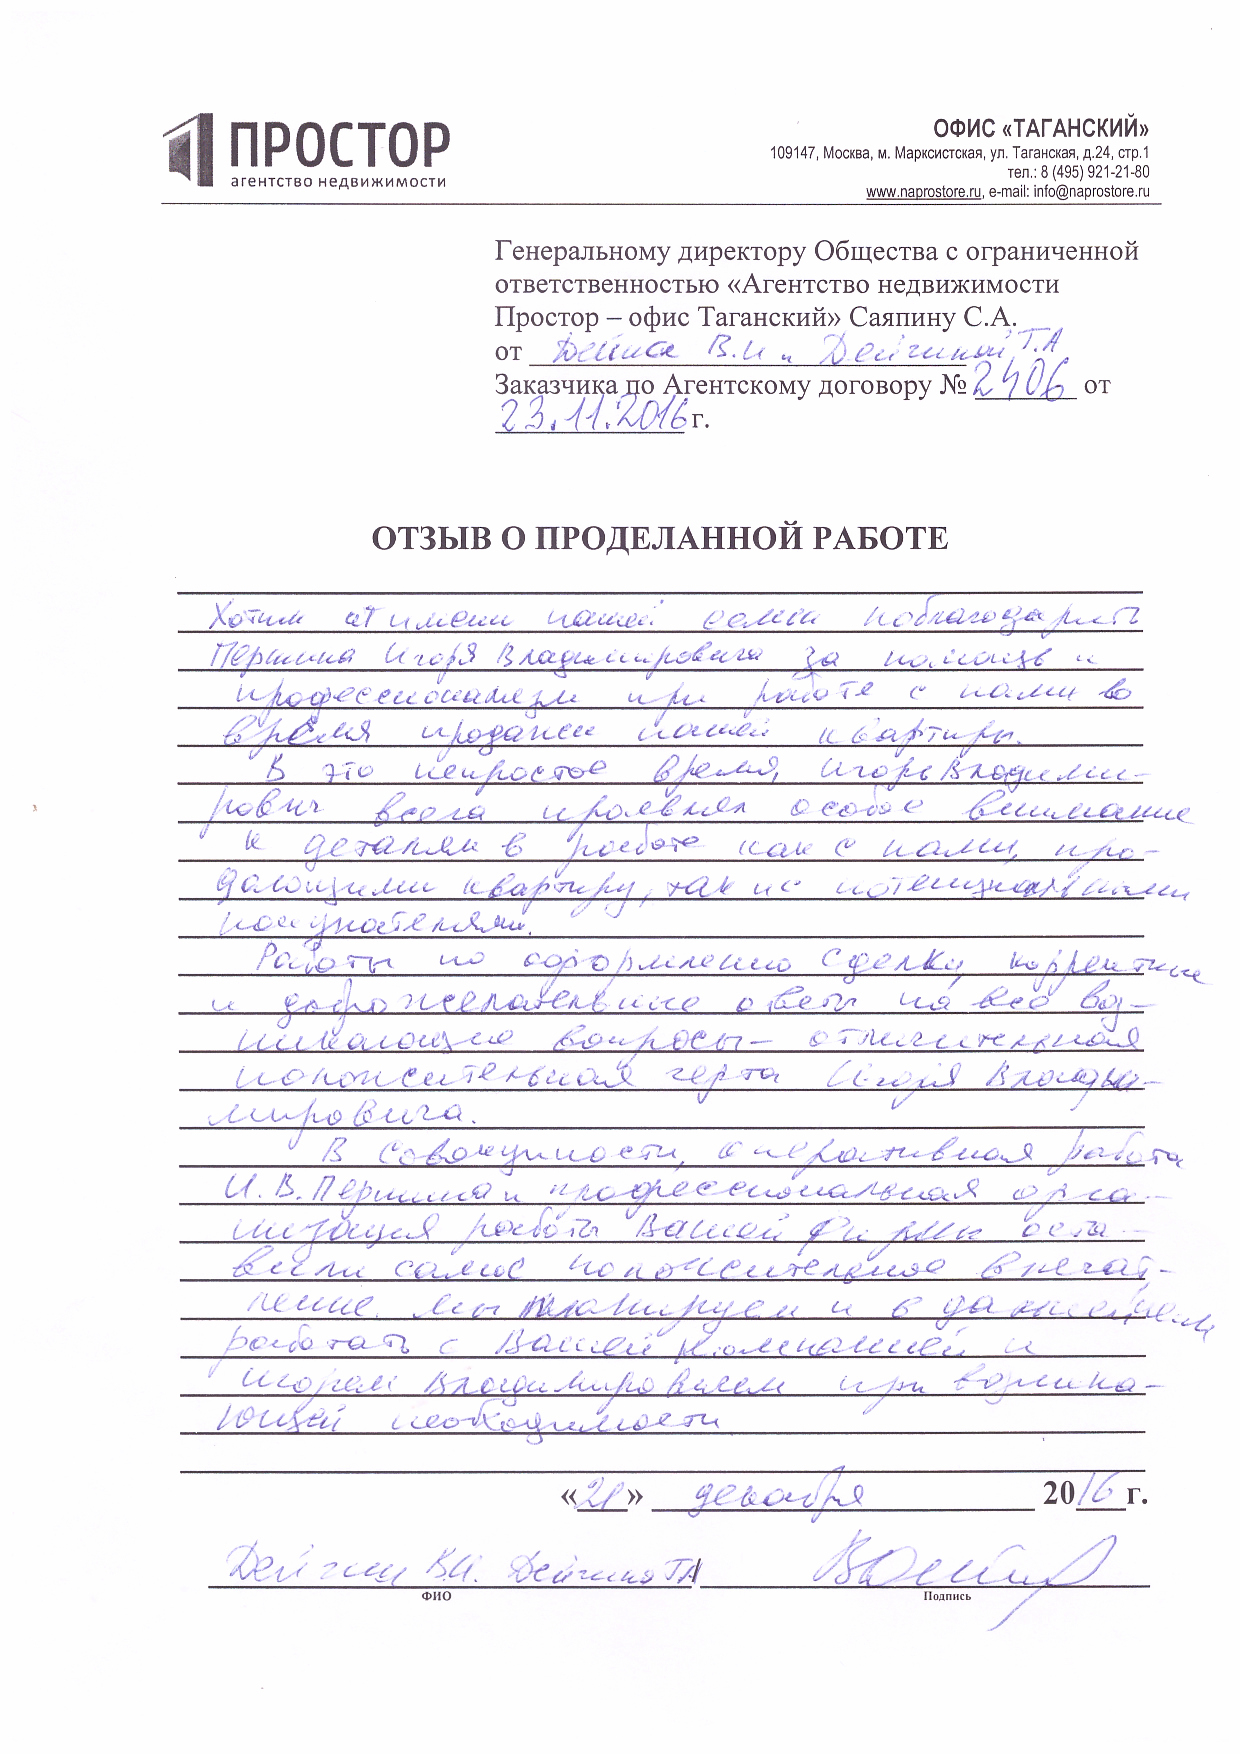 ПРОСТОР
агентство недвижимости
ОФИС «ТАГАНСКИЙ»
109147, Москва, м. Марксистская, ул. Таганская, д.24, стр.1
тел.: 8 (495) 921-21-80
www.naprostore.ru, e-mail: info@naprostore.ru
Генеральному директору Общества с ограниченной
ответственностью «Агентство недвижимости
Простор – офис Таганский» Саяпину С.А.
от В.И и Дейчиной Т.А
Заказчика по Агентскому договору № 2406 от
23.11.2016 г.
ОТЗЫВ О ПРОДЕЛАННОЙ РАБОТЕ
Хотим от имени нашей семьи поблагодарить
Першина Игоря Владимировича за помощь и
профессионализм при работе с нами во
время продажи нашей квартиры.
В это непростое время, Игорь Владими-
рович всегда проявлял особое внимание
к деталям в работе как с нами, про-
дающими квартиру, так и с потенциальными
покупателями.
Работы по оформлению сделки, корректные
и доброжелательные ответы на все воз-
никающие вопросы - отличительная
положительная черта Игоря Влади-
мировича.
В совокупности, оперативная работа
И.В. Першина и профессиональная орга-
низация работы Вашей фирмы оста-
вили самое положительное впечат-
ление. Мы планируем и в дальнейшем
работать с Вашей компанией и
Игорем Владимировичем при возника-
ющей необходимости
«21» декабря 2016 г.
Дейчин В.И. Дейчина ТА
ФИО
Подпись